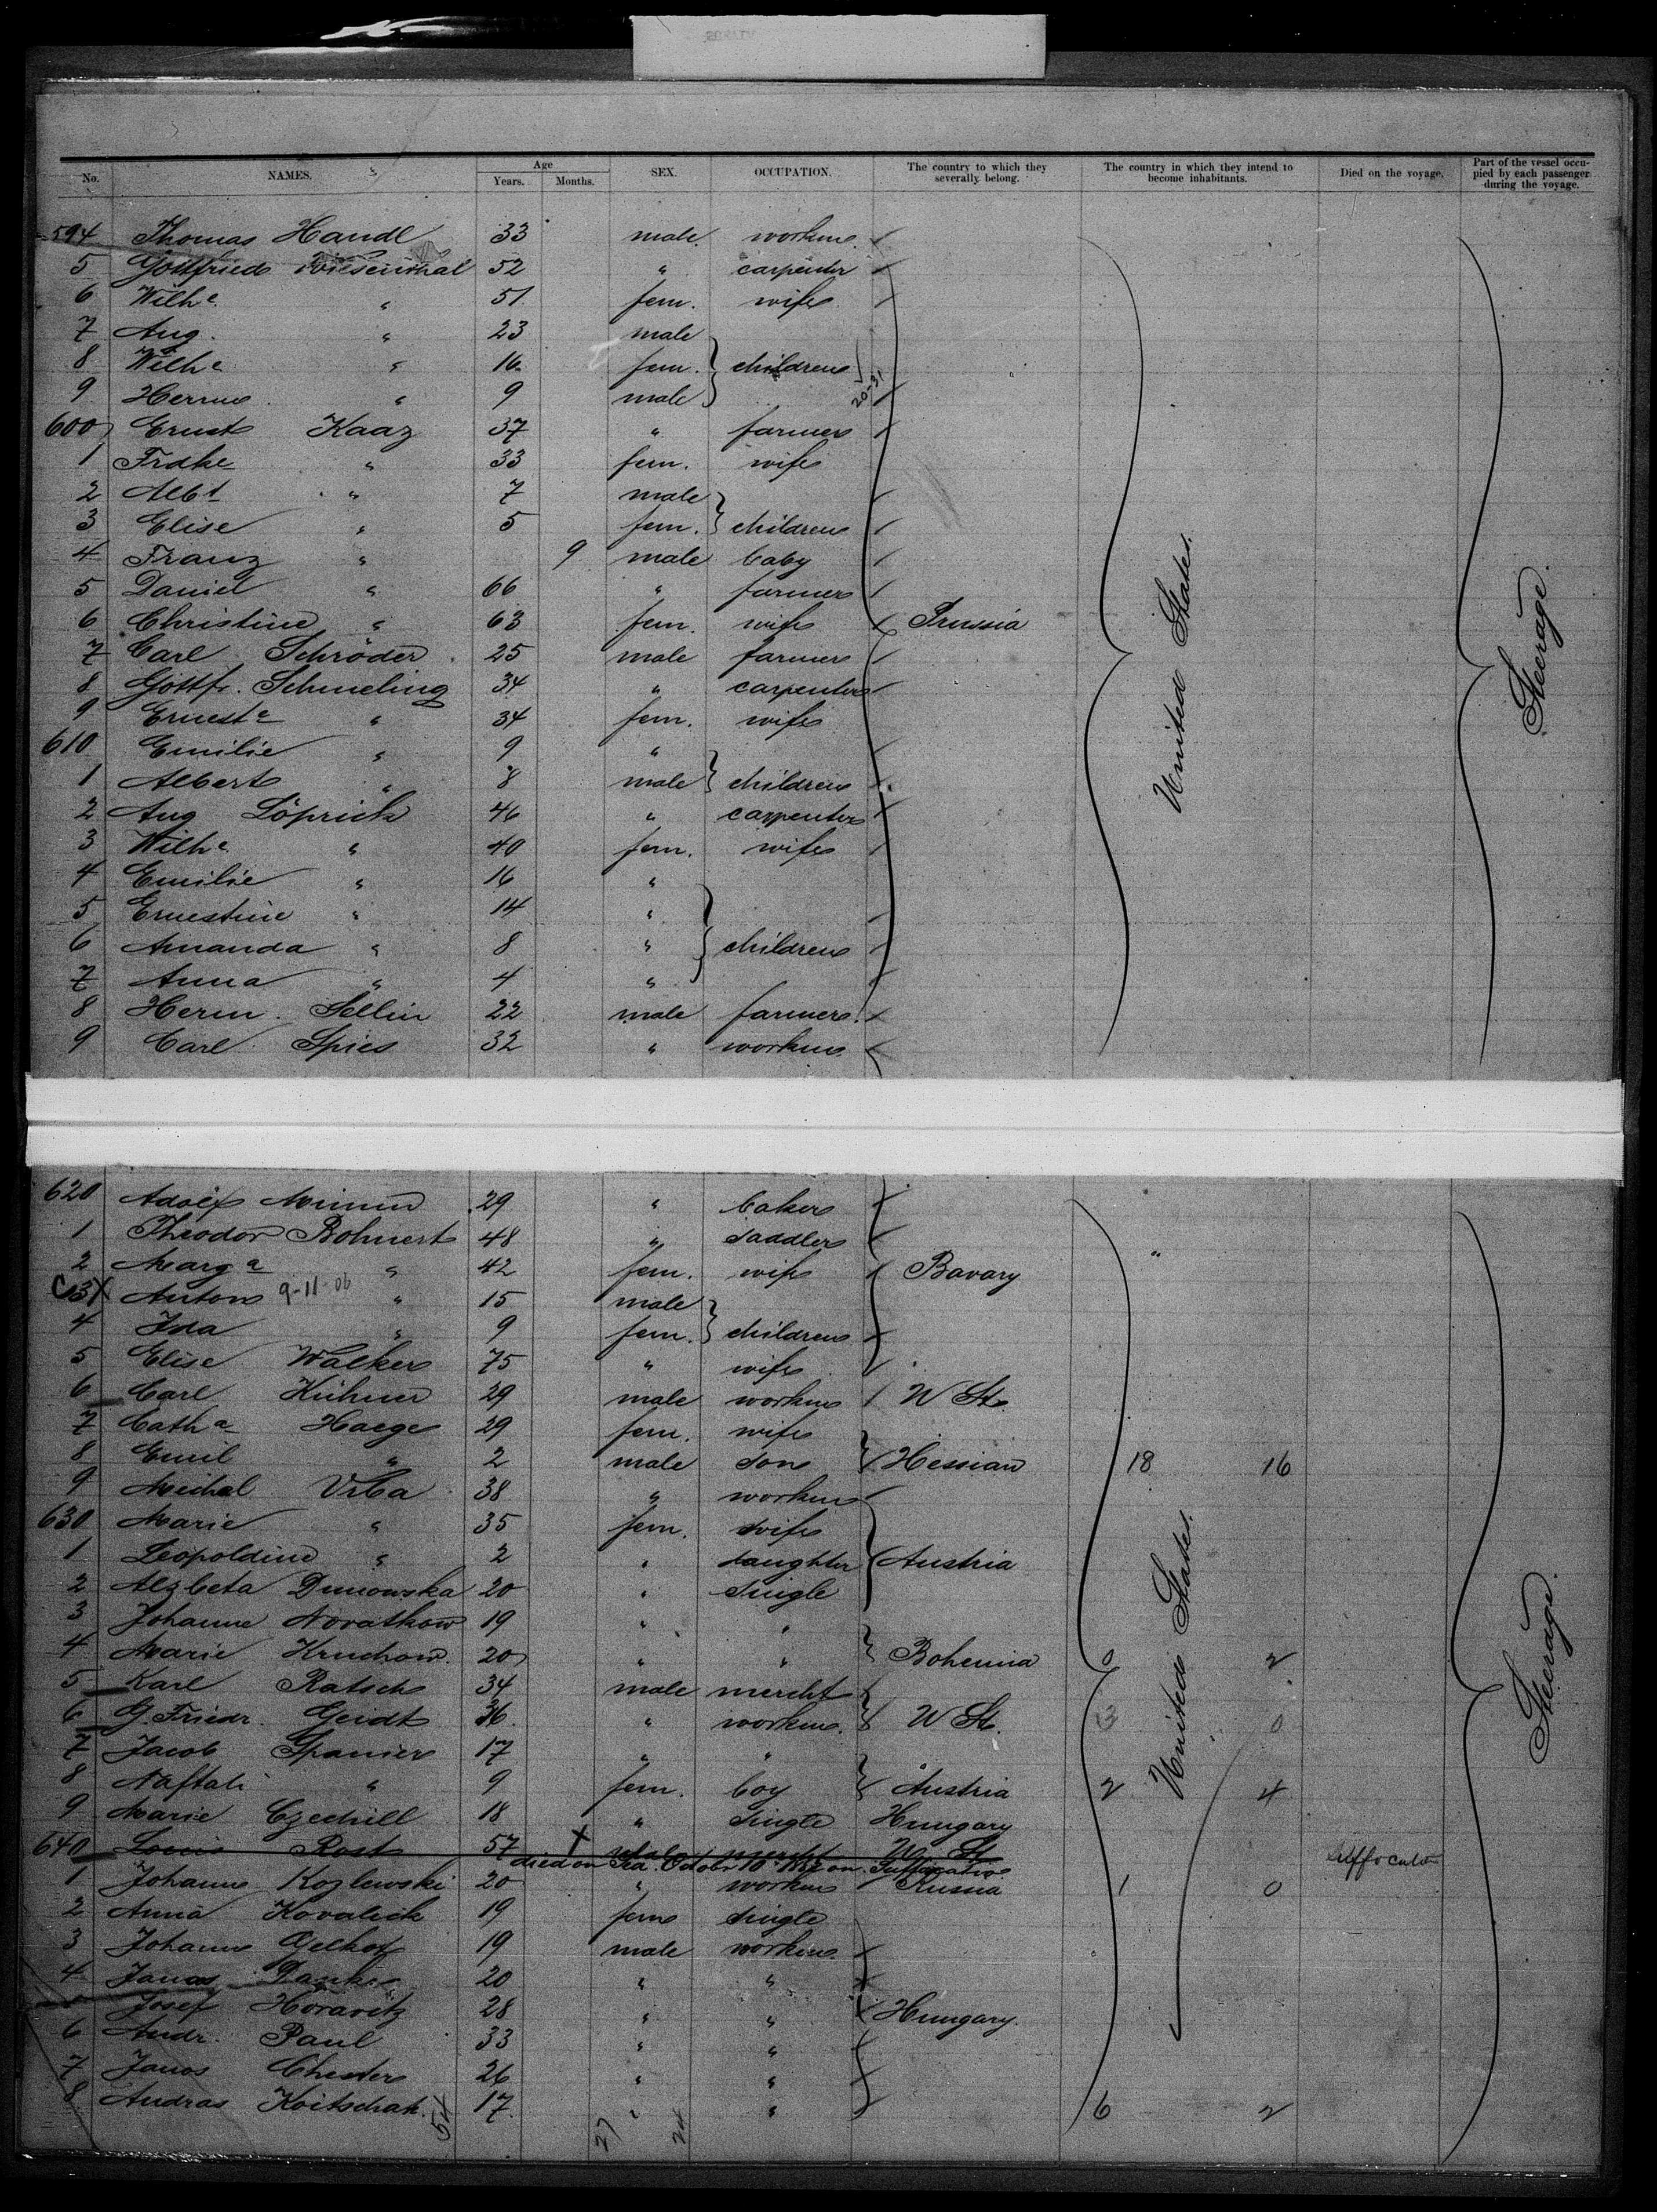 No. NAMES. Age Years. Months. SEX. OCCUPATION. The country to which they severally belong. The country in which they intend to become inhabitants. Died on the voyage. Part of the vessel occupied by each passenger during the voyage.
594 Thomas Handl 33 male. workm.
5 Gottfried Wiesenthal 52 " carpenter
6 Wilhe. " 51 fem. wife
7 Aug. " 23 male
8 Wilhe " 16 fem. children
9 Herm " 9 male 20-31
600 Ernst Kaaz 37 " farmer
1 Frdke " 33 fem. wife
2 Albt " 7 male
3 Elise " 5 fem. children
4 Franz " 9 male baby
5 Daniel " 66 " farmer
6 Christine " 63 fem. wife Prussia United States. Steerage.
7 Carl Schröder 25 male farmer
8 Gottfr. Schmeling 34 " carpenter
9 Erneste " 34 fem. wife
610 Emilie " 9 "
1 Albert " 8 male children
2 Aug Löprick 46 " carpenter
3 Wilhe " 40 fem. wife
4 Emilie " 16 "
5 Ernestine " 14 "
6 Amanda " 8 " children
7 Anna " 4 "
8 Herm. Sellin 22 male farmer
9 Carl Spies 32 " workm.
620 Adolf 29 " baker
1 Theodor Bohnert 48 " saddler
2 Marga " 42 fem. wife Bavary "
3 X Anton 9-11-06 " 15 male
4 Ida " 9 fem. children
5 Elise Walker 75 " wife
6 Carl Kühner 29 male workm W St.
7 Catha Haege 29 fem. wife
8 Emil " 2 male son Hessian 18 16
9 Michal Vrba 38 " workm
630 Marie " 35 fem. wife
1 Leopoldine " 2 " daughter Austria
2 Alzbeta Dunowska 20 " single
3 Johanna 19 " "
4 Marie 20 " " Bohemia 0 2
5 Karl Ratsch 34 male mercht
6 G. Friedr. Geidt 36. " workm. W St. 3 0
7 Jacob Spanier 17 " "
8 Naftali " 9 fem. boy Austria 2 4
9 Marie Czechill 18 " single Hungary
640 Louis Rost 57 X male mercht W St Suffocato
died on Sea October 10 on Suffocation
1 Johann Kozlewski 20 " workm Russia 1 0
2 Anna Kovalick 19 fem single
3 Johann 19 male workm.
4 Janos 20 " "
Josef Horavitz 28 " " Hungary
6 Andr. Paul 33 " "
7 Janos Chester 26 " "
8 Andras Koitschak. 17. " " 6 2
54 27 24
United States.
Steerage.